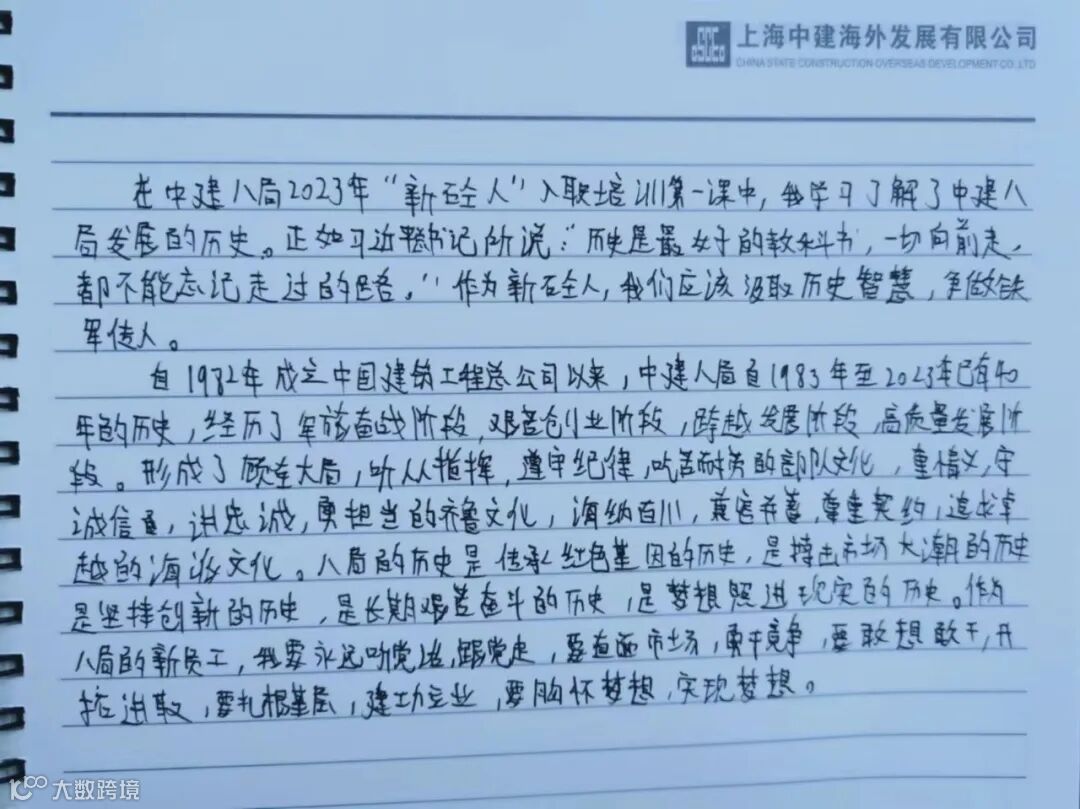 上海中建海外发展有限公司
CHINA STATE CONSTRUCTION OVERSEAS DEVELOPMENT CO.,LTD
在中建八局2023年“新砼人”入职培训第一课中,我学习了解了中建八
局发展的历史。正如习近平总书记所说:“历史是最好的教科书,一切向前走,
都不能忘记走过的路。”作为新砼人,我们应该汲取历史智慧,争做铁
军传人。
自1982年成立中国建筑工程总公司以来,中建八局自1983年至2023年已有40
年的历史,经历了军旅奋战阶段,艰苦创业阶段,跨越发展阶段,高质量发展阶
段。形成了顾全大局,听从指挥,遵守纪律,吃苦耐劳的部队文化,重情义,守
诚信,讲忠诚,勇担当的齐鲁文化,海纳百川,兼容并蓄,尊重契约,追求卓
越的海派文化。八局的历史是传承红色基因的历史,是搏击市场大潮的历史
是坚持创新的历史,是长期艰苦奋斗的历史,是梦想照进现实的历史。作为
八局的新员工,我要永远听党话,跟党走,要直面市场,勇于竞争,要敢想敢干,开
拓进取,要扎根基层,建功立业,要胸怀梦想,实现梦想。
大数跨境